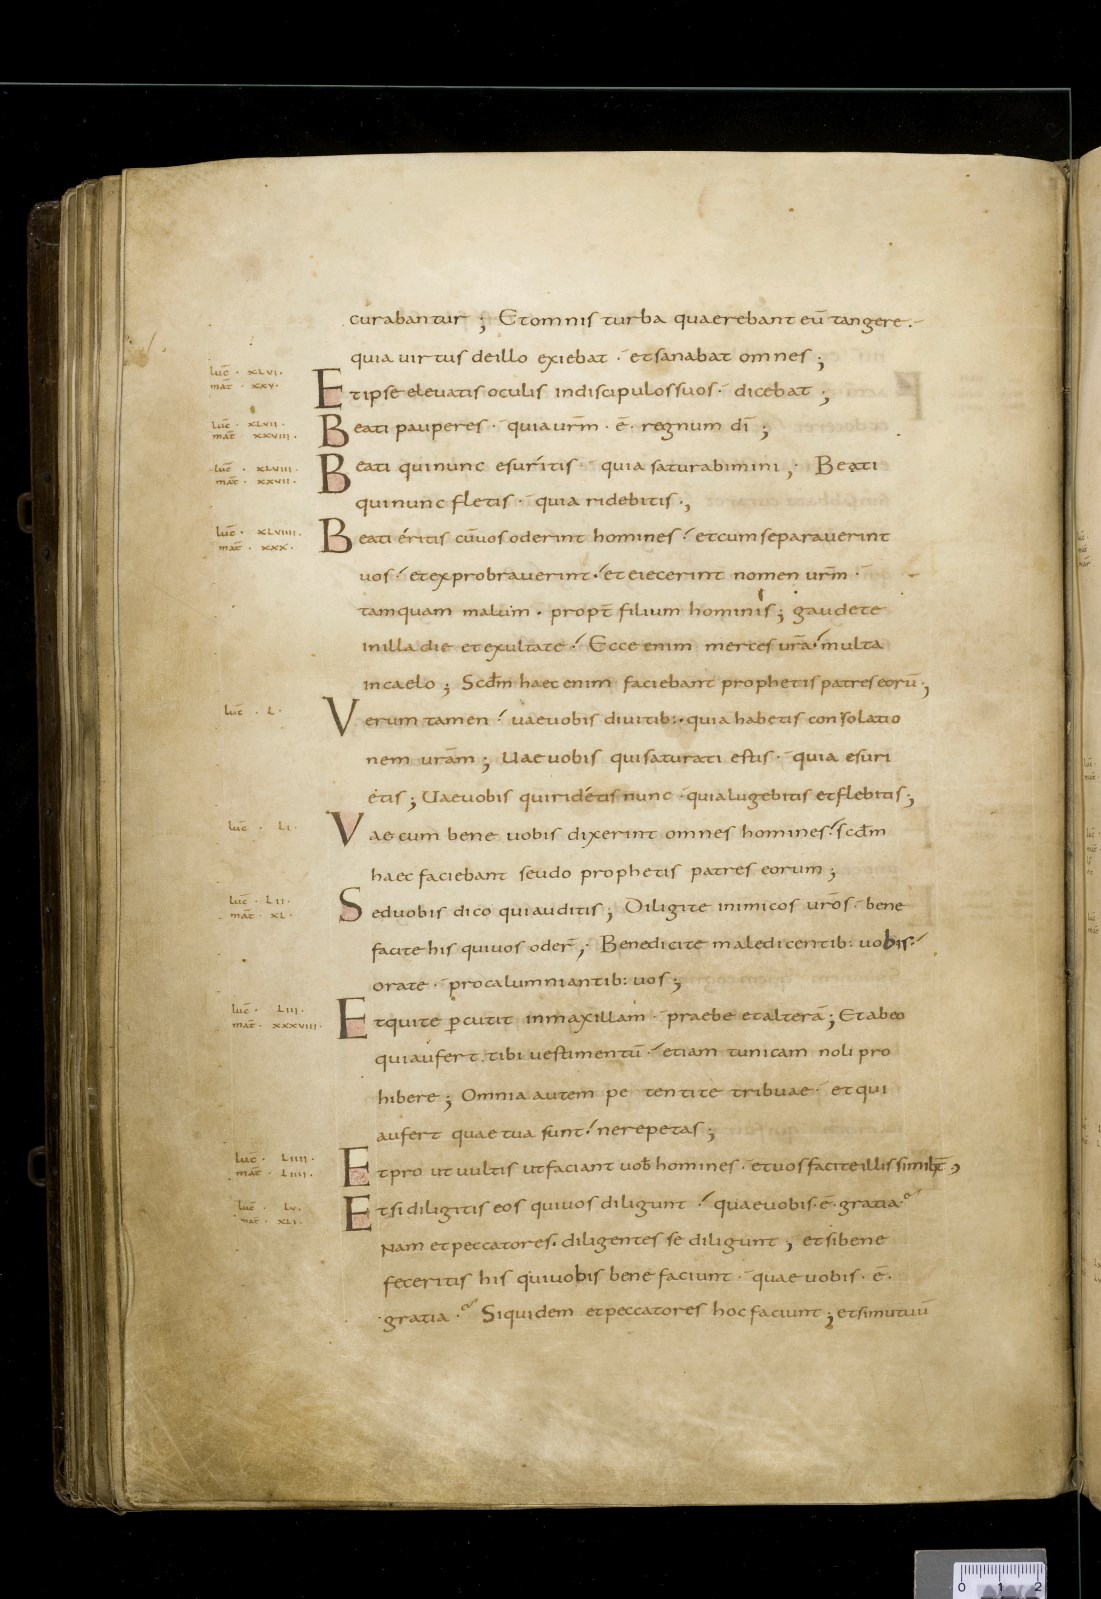 curabantur ; Et omnis turba quaerebant eū tangere .
quia uirtus de illo exiebat · et sanabat omnes ;
luc̄ · XLVI ·
mat̄ · XXV ·
Et ipse eleuatis oculis in discipulos suos · dicebat ;
luc̄ · XLVII ·
mat̄ XXVIII ·
Beati pauperes · quia ur̄m · ē · regnum dī ;
luc̄ · XLVIII ·
mat̄ · XXVII ·
Beati qui nunc esuritis · quia saturabimini ; Beati
qui nunc fletis · quia ridebitis ;
luc̄ · XLVIIII ·
mat̄ · XXX ·
Beati éritis cū uos oderint homines · et cum separauerint
uos · et exprobrauerint · et eiecerint nomen ur̄m ·
tamquam malum · propt̄ filium hominis ; gaudete
in illa die et exultate · Ecce enim merces ur̄a · multa
in caelo ; Scdm̄ haec enim faciebant prophetis patres eorū ;
luc̄ · L ·
Verum tamen · uae uobis diuitib: · quia habetis consolatio
nem ur̄am ; Uae uobis qui saturati estis · quia esuri
étis ; Uae uobis qui ridétis nunc · quia lugebitis et flebitis ;
luc̄ · LI ·
Vae cum bene uobis dixerint omnes homines · scdm̄
haec faciebant seudo prophetis patres eorum ;
luc̄ · LII ·
mat̄ · XL ·
Sed uobis dico qui auditis ; Diligite inimicos ur̄os · bene
facite his qui uos oder̄ ; Benedicite maledicentib: uobis ·
orate · pro calumniantib: uos ;
luc̄ · LIII ·
mat̄ · XXXVIII ·
Et qui te ꝑcutit in maxillam · praebe et alterā ; Et ab eo
qui aufert tibi uestimentū · etiam tunicam noli pro
hibere ; Omnia autem pe tenti te tribuae · et qui
aufert quae tua sunt · ne repetas ;
luc̄ · LIIII ·
mat̄ · LIIII ·
Et pro ut uultis ut faciant uob̄ homines · et uos facite illis similit̄ ;
luc̄ LV ·
mat̄ · XLI ·
Et si diligitis eos qui uos diligunt · quae uobis · ē · gratia ·
Nam et peccatores · diligentes se diligunt ; et si bene
feceritis his qui uobis bene faciunt · quae uobis · ē ·
gratia · Siquidem et peccatores hoc faciunt ; et si mutuū
0 1 2